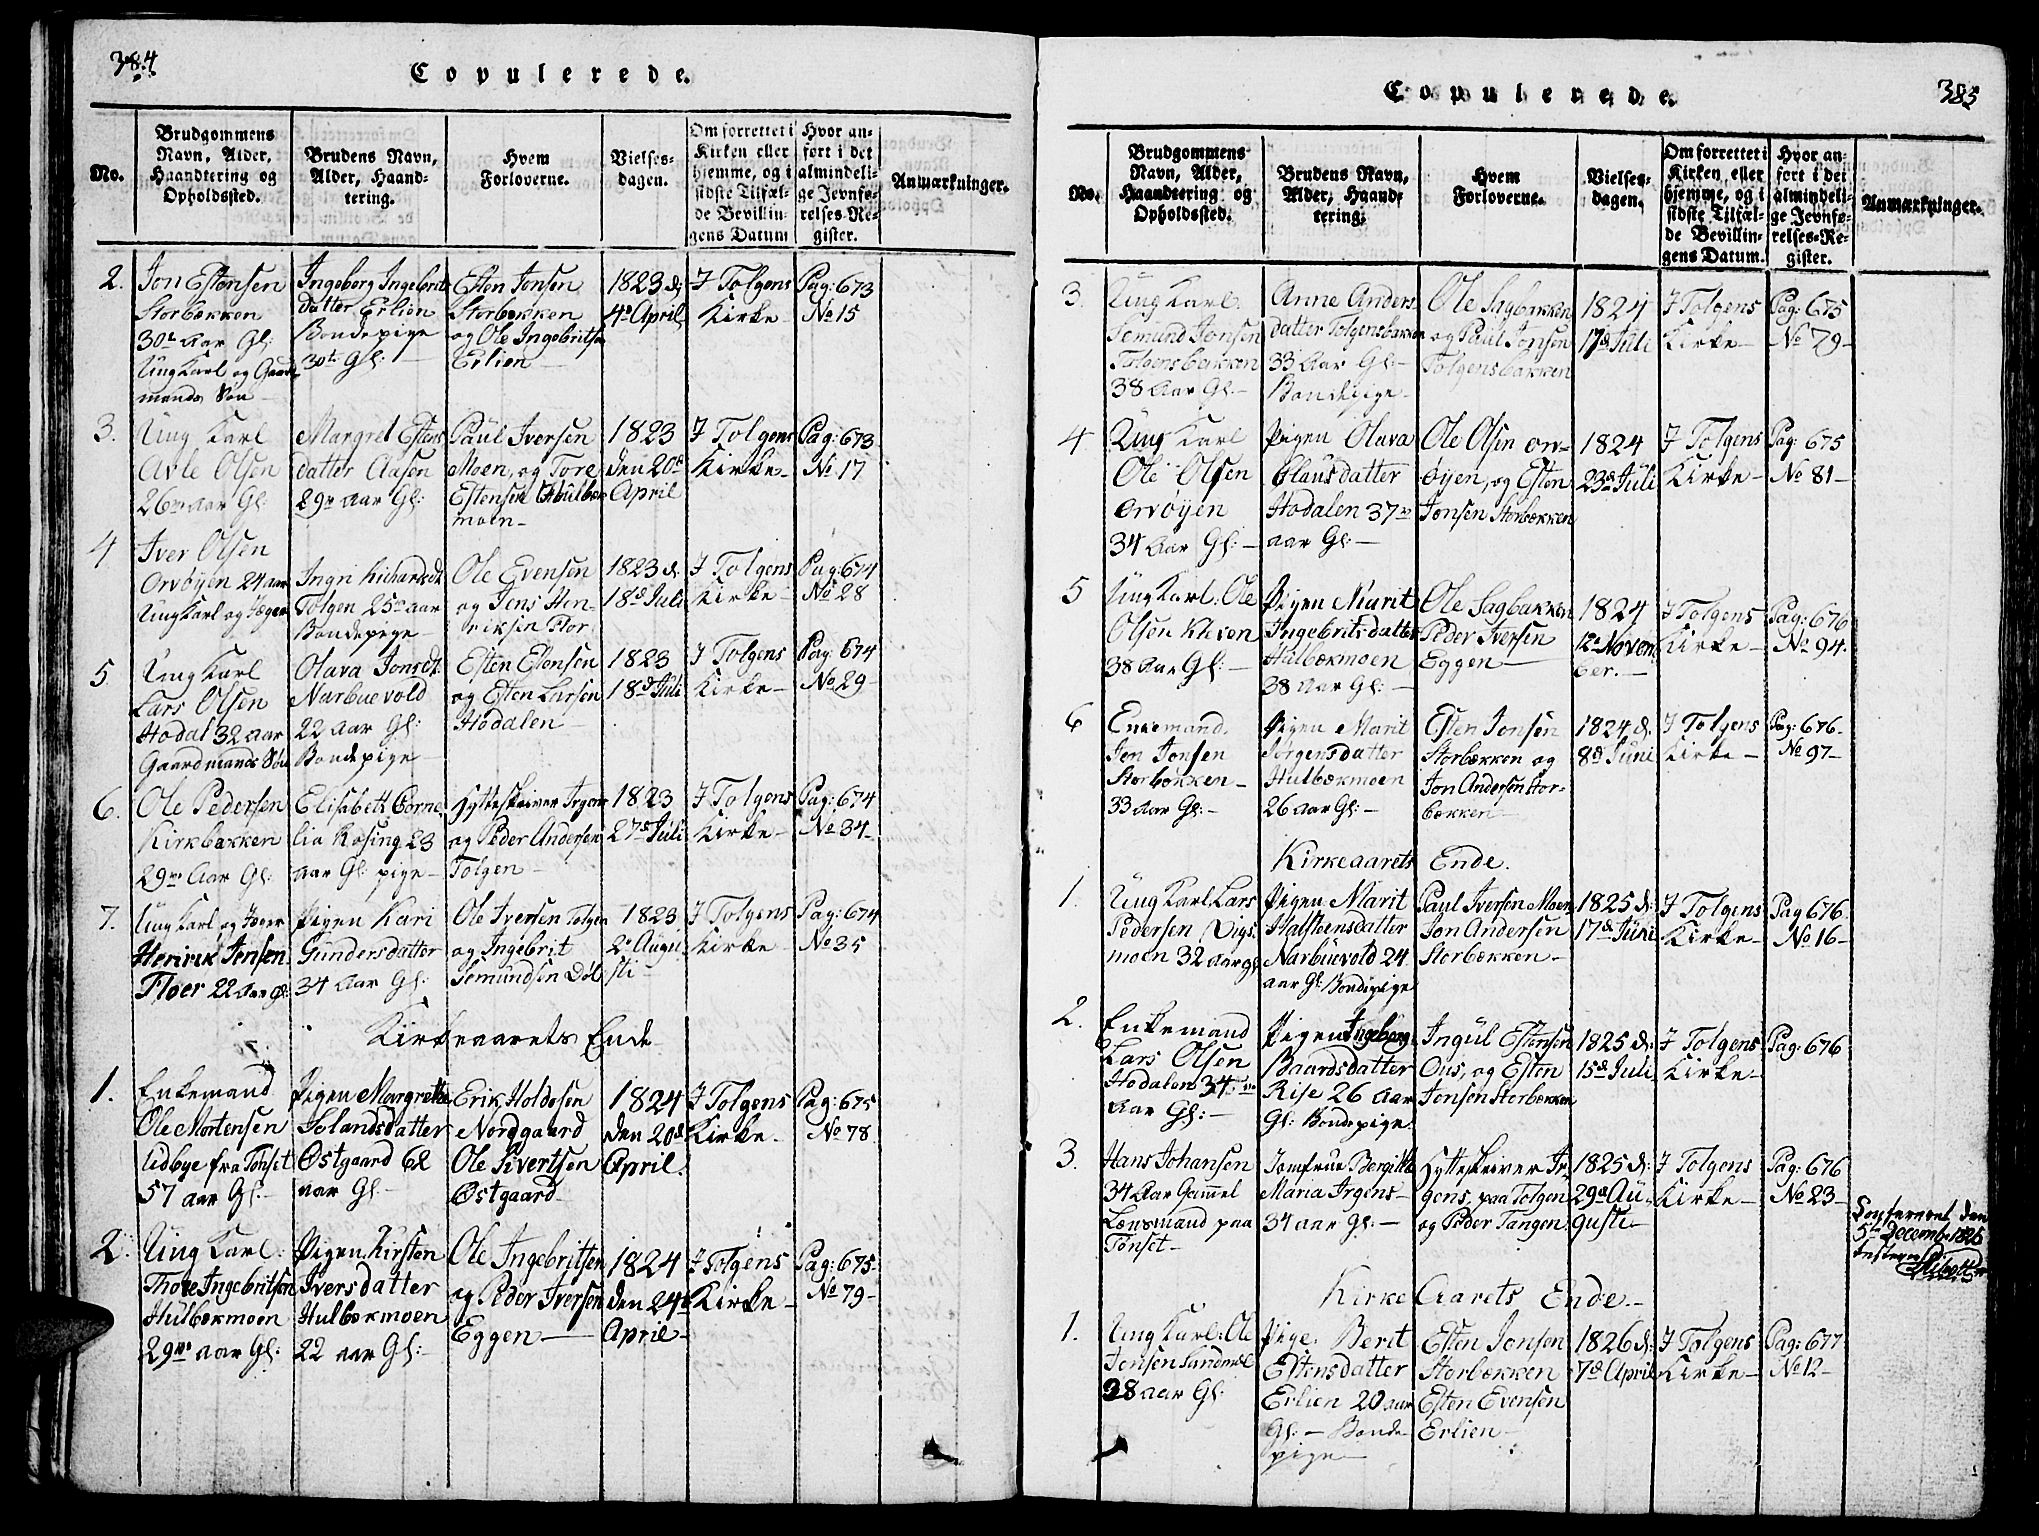 384
Copulerede.
No.
Brudgommens
Navn, Alder,
Haandtering og
Opholdssted.
Brudens Navn,
Alder, Haand-
tering.
Hvem
Forloverne.
Vielses-
dagen.
Om forrettet i
Kirken eller
hjemme, og i
sidste Tilfæl-
de Bevillin-
gens Datum
Hvor an-
ført i det
almindeli-
ge Jevnfø-
relses-Re-
gister.
Anmærkninger.
2.
Jon Estensen
Storbækken
30te Aar Gl:
Ung Karl og Gaard
mands Søn
Ingeborg Ingebrit
datter Erlien
Bondepige
30te Gl:
Esten Jonsen
Storbækken
og Ole Ingebritsen
Erlien
1823 d:
4de April
I Tolgens
Kirke
Pag: 673
No 15
3.
Ung Karl
Avle Olsen
26 Aar Gl:
Margret Estens
datter Aasen
29 aar Gl:
Paul Iversen
Moen, og Tore
Estensen Hulbæk
moen
1823
den 20de
April
I Tolgens
Kirke
Pag: 673
No 17
4
Iver Olsen
Orvøyen 24 aar
Ung Karl og Jæger
Ingri Richardsdt
Tolgen 25 aar
Bondepige
Ole Evensen
og Jens Hen-
riksen Flor
1823 d:
18d Juli
I Tolgens
Kirke
Pag: 674
No 28
5
Ung Karl
Lars Olsen
Hodal 32 aar
Gaardmands Søn
Olava Jonsdt
Narbuevold
22 aar Gl:
Bondepige
Esten Estensen
og Esten Larsen
Hodalen
1823
18d Juli
I Tolgens
Kirke
Pag: 674
No 29
6.
Ole Pedersen
Kirkbakken
29 Aar Gl:
Elisabeth Corne
lia Rosing 23
aar Gl: pige
Hytteskriver Irgens
og Peder Andersen
Tolgen
1823
27d Juli
I Tolgens
Kirke
Pag: 674
No 34
7.
Ung Karl og Jæger
Henrik Jensen
Floer 22 Aar gl:
Pigen Kari
Gundersdatter
34 Aar Gl:
Ole Iversen Tolgen
og Ingebrit
Semundsen Døl
1823
2d Augu
sti
I Tolgens
Kirke
Pag: 674
No 35
Kirkeaarets Ende
1.
Enkemand
Ole Mortensen
Udbye fra Tønset
57 aar Gl:
Pigen Margrethe
Iolandsdatter
Østgaard 62
aar Gl
Erik Holdosen
Nordgaard
Ole Sivertsen
Østgaard
1824
den 20d
April.
I Tolgens
Kirke
Pag: 675
No 78
2.
Ung Karl:
Thore Ingebritsen
Hulbækmoen
29 aar Gl:
Pigen Kirsten
Iversdatter
Hulbækmoen
22 aar Gl:
Ole Ingebritsen
og Peder Iversen
Eggen
1824
den 24d
April
I Tolgens
Kirke
Pag: 675
No 79
385
Copulerede.
No.
Brudgommens
Navn, Alder,
Haandtering og
Opholdssted.
Brudens Navn,
Alder, Haand-
tering.
Hvem
Forloverne.
Vielses-
dagen.
Om forrettet i
Kirken eller
hjemme, og i
sidste Tilfæl-
de Bevillin-
gens Datum.
Hvor an-
ført i det
almindeli-
ge Jevnfø-
relses-Re-
gister.
Anmærkninger.
3.
Ung Karl.
Semund Jonsen
Tolgensbakken
38 Aar Gl:
Anne Anders
datter Tolgensbakken
33 Aar Gl:
Bondepige
Ole Sagbakken
og Paul Jonsen
Tolgensbakken
1824
17d Juli
I Tolgens
Kirke
Pag: 675
No 79
4
Ung Karl
Ole Olsen
Orvøyen
34 Aar Gl:
Pigen Olava
Clausdatter
Hodalen 37
aar Gl:
Ole Olsen Or-
øyen, og Esten
Jonsen Storbækken
1824
23d Juli
I Tolgens
Kirke
Pag: 675
No 81
5
Ung Karl: Ole
Olsen Kleven
38 Aar Gl:
Pigen Marit
Ingebritsdatter
Hulbækmoen
38 Aar Gl:
Ole Sagbakken
Peder Iversen
Eggen
1824
12d Novem
ber.
I Tolgens
Kirke
Pag: 676
No 94.
6
Enkemand.
Jon Jonsen
Storbekken
33 aar Gl:
Pigen Marit
Jørgensdatter
Hulbækmoen
26 aar Gl:
Esten Jonsen
Storbækken og
Jon Andersen Stor-
bækken
1824 d:
8d Juni
I Tolgens
Kirke
Pag: 676
No 97
Kirkeaarets Ende.
1.
Ung Karl Lars
Pedersen Vigs
moen 32 aar gl
Pigen Marit
Halstensdatter
Narbuevold 24
aar Gl: Bondepige
Paul Iversen Moen
Jon Andersen
Storbækken
1825 d:
17d Juni
I Tolgens
Kirke
Pag 676.
No 16
2.
Enkemand
Lars Olsen
Hodalen 34
aar Gl:
Pigen Ingeborg
Baardsdatter
Rise 26 aar
Gl: Bondepige
Ingul Estensen
Ous, og Esten
Jonsen Storbækken
1825 d:
15d Juli
I Tolgens
Kirke
Pag: 676
3.
Hans Johansen
34 Aar Gammel
Lensmand paa
Tønset
Jomfrue Bergitte
Maria Irgens
34 aar gl:
Hytteskriver Ir
gens, paa Tolgen
og Peder Tangen
1825 d:
29d Au
guste
I Tolgens
Kirke
Pag: 676
No 23
Confereret den
5te Decembr 1826
testerer
Kirke Aarets Ende.
1.
Ung Karl: Ole
Jonsen Sandmæl
28 aar Gl:
Pige: Berit
Estensdatter
Erlien 20 aar
Gl: Bonde
pige
Esten Jonsen
Storbækken
Esten Evensen
Erlien
1826 d:
7d April
I Tolgens
Kirke
Pag: 677
No 12